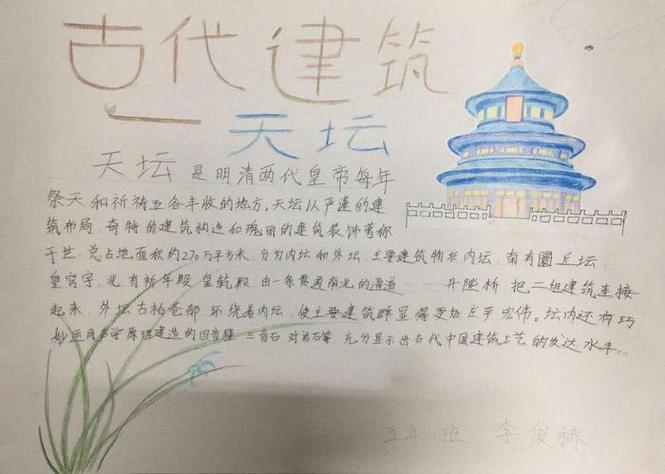 古代建筑
天坛
天坛是明清两代皇帝每年
祭天和祈祷五谷丰收的地方。天坛以严谨的建
筑布局 奇特的建筑构造和瑰丽的建筑装饰著称
于世。总占地面积约270万平方米。分为内坛和外坛。主要建筑物在内坛。南有圜丘坛
皇穹宇，北有祈年殿 皇乾殿 由一条贯通南北的甬道 丹陛桥 把二组建筑连接
起来。外坛古柏苍郁 环绕着内坛，使主要建筑群显得更加庄严宏伟。坛内还有巧
妙运用声学原理建造的回音壁 三音石 对话石等 充分显示出古代中国建筑工艺的发达水平。
五年 班 李俊赫